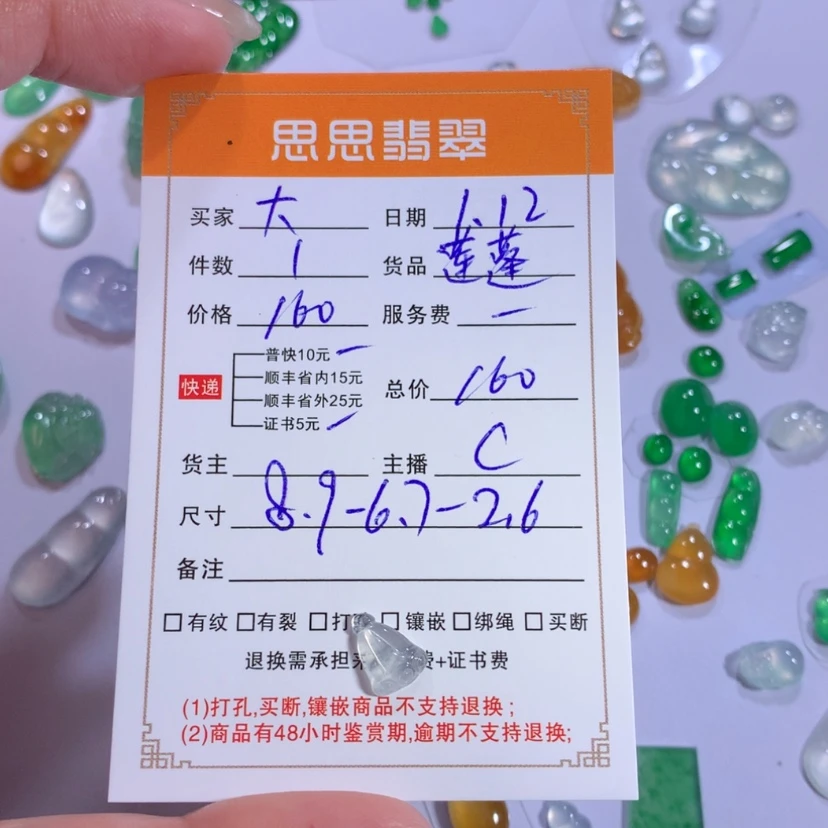 思思翡翠
买家 大 日期 1.12
件数 1 货品 莲蓬
价格 160 服务费 一
普快10元
顺丰省内15元
快递 总价 160
顺丰省外25元
证书5元
货主 主播 C
尺寸 8.9-6.7-2.6
备注
□有纹 □有裂 □打 □镶嵌 □绑绳 □买断
退换需承担来 费+证书费
(1)打孔,买断,镶嵌商品不支持退换;
(2)商品有48小时鉴赏期,逾期不支持退换;